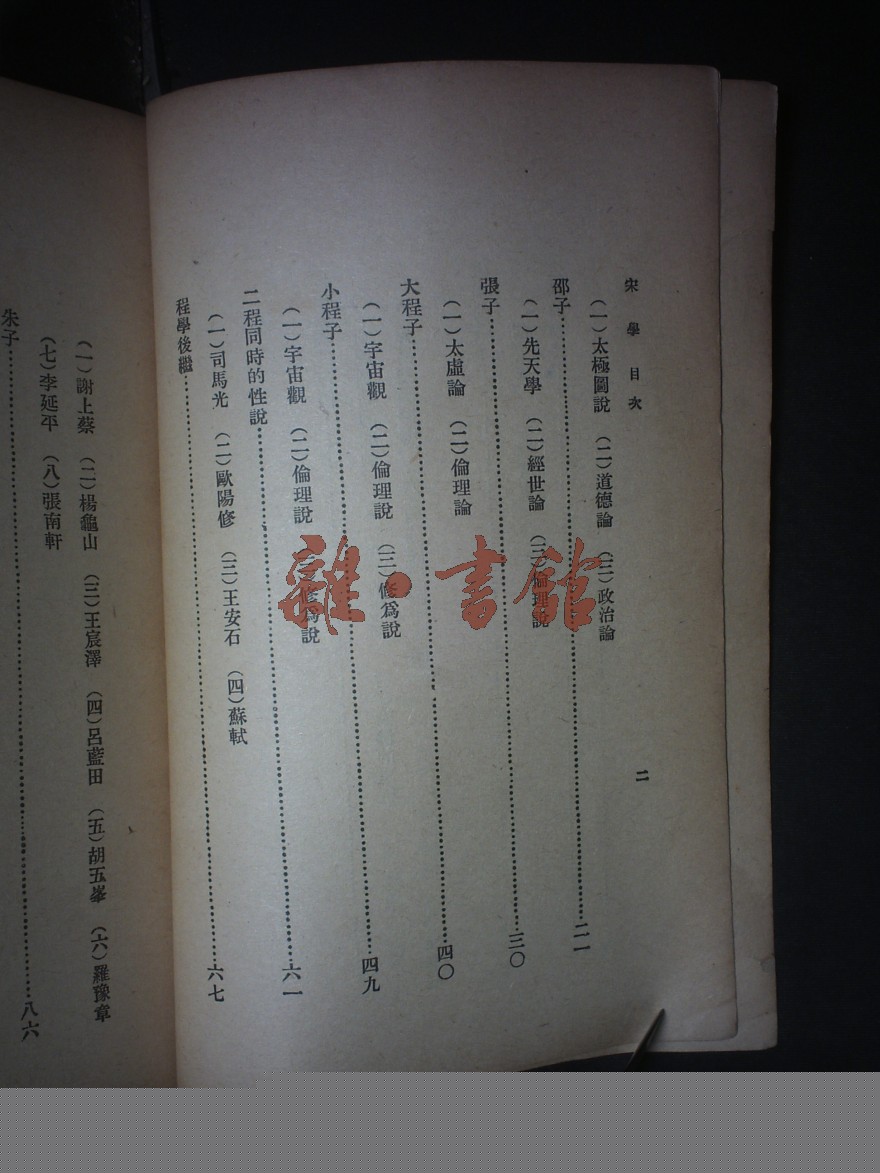 宋學 目次
二
（一）太極圖說 （二）道德論 （三）政治論
邵子……二一
（一）先天學 （二）經世論 （三）倫理說
張子……三〇
（一）太虛論 （二）倫理論
大程子……四〇
（一）宇宙觀 （二）倫理說 （三）修爲說
小程子……四九
（一）宇宙觀 （二）倫理說 （三）修爲說
二程同時的性說……六一
（一）司馬光 （二）歐陽修 （三）王安石 （四）蘇軾
程學後繼……六七
（一）謝上蔡 （二）楊龜山 （三）王宸澤 （四）呂藍田 （五）胡五峯 （六）羅豫章
（七）李延平 （八）張南軒
朱子……八六
雜·書館